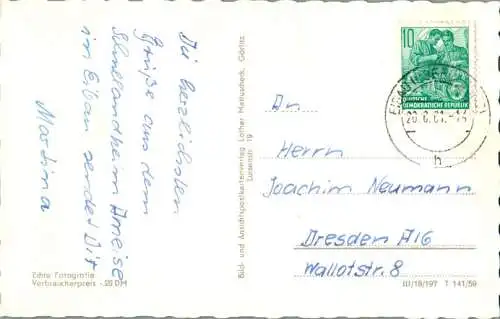 Die herzlichsten
Grüße aus dem
Schullandheim Ameise
in Eibau sendet Dir
Martina
Echte Fotografie
Verbraucherpreis -.20 DM
Bild- und Ansichtspostkartenverlag Lothar Hanuscheck, Görlitz
Luisenstr. 19
10
DEUTSCHE
DEMOKRATISCHE REPUBLIK
h
Herrn
Joachim Neumann
Dresden A16
Wallotstr. 8
III/18/197 T 141/59